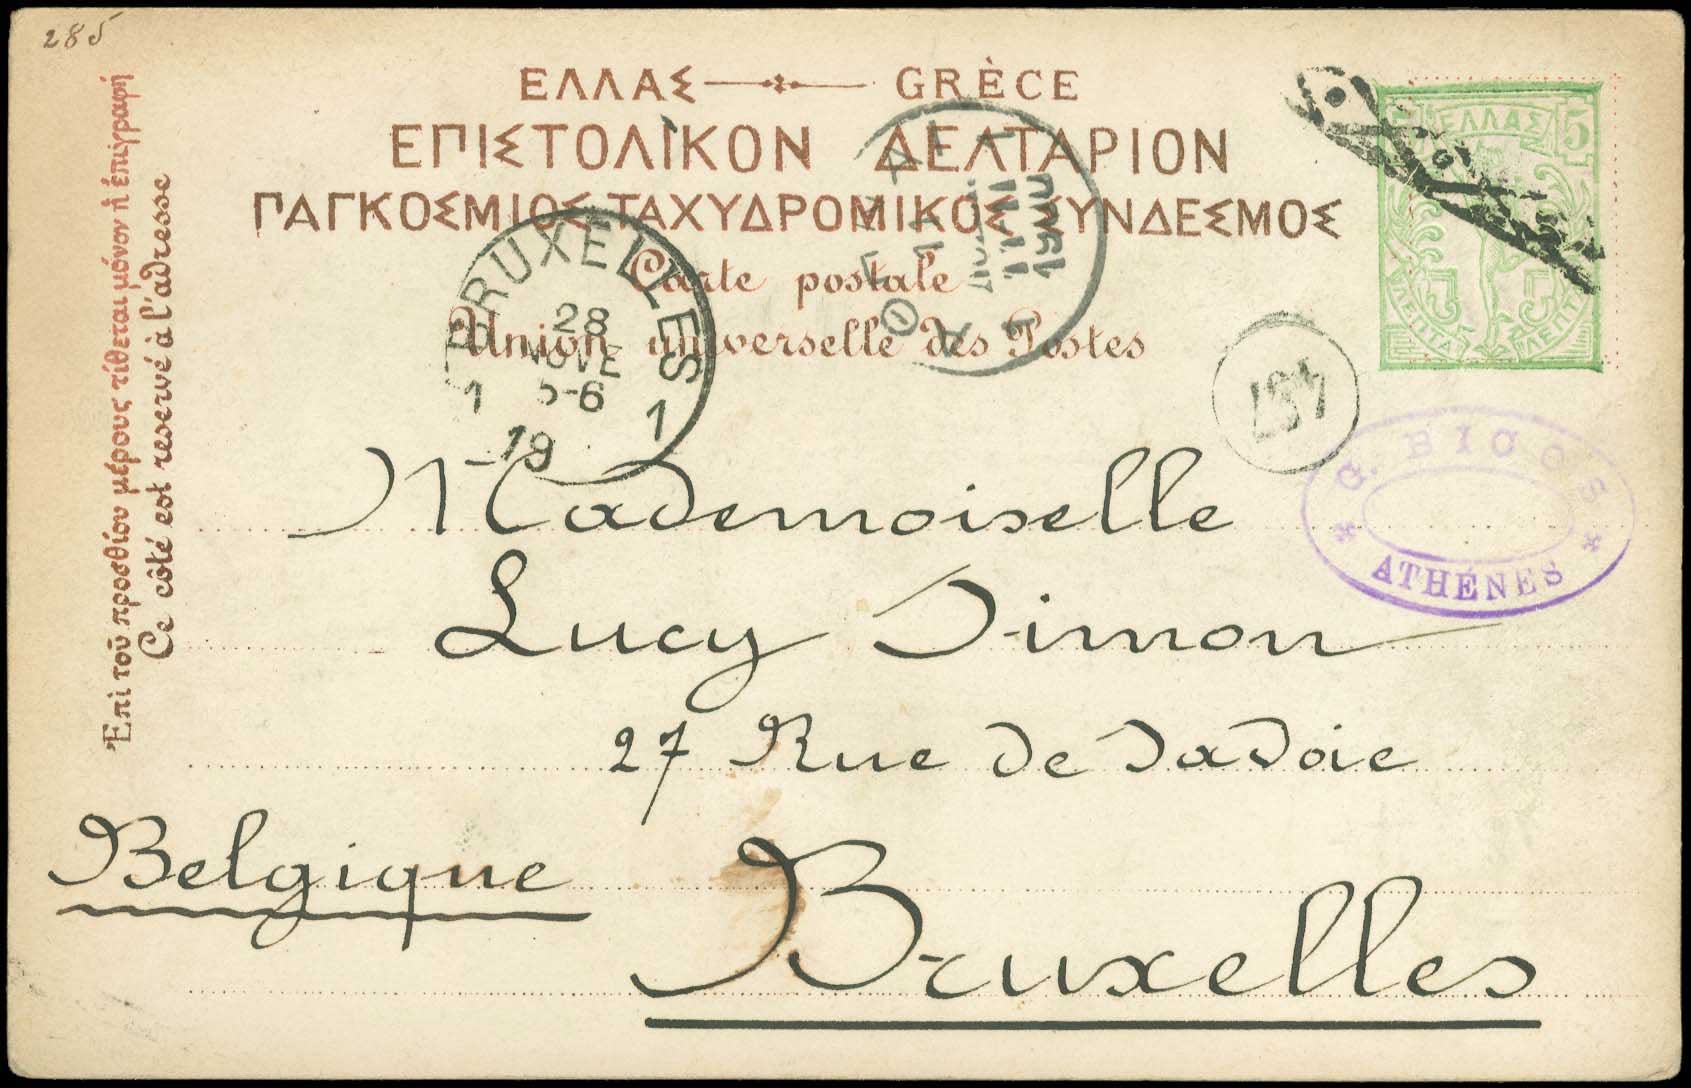 285
ΕΛΛΑΣ GRÈCE
ΕΠΙΣΤΟΛΙΚΟΝ ΔΕΛΤΑΡΙΟΝ
ΠΑΓΚΟΣΜΙΟΣ ΤΑΧΥΔΡΟΜΙΚΟΣ ΣΥΝΔΕΣΜΟΣ
Carte postale
Union universelle des Postes
Ἐπὶ τοῦ προσθίου μέρους τίθεται μόνον ἡ ἐπιγραφή
Ce côté est reservé à l'adresse
ΕΛΛΑΣ 5
ΛΕΠΤΑ 5 5 ΛΕΠΤΑ
BRUXELLES
28
NOVE
5-6
1 1
19
G. BICOS
ATHÉNES
Mademoiselle
Lucy Simon
27 Rue de Savoie
Belgique
Bruxelles